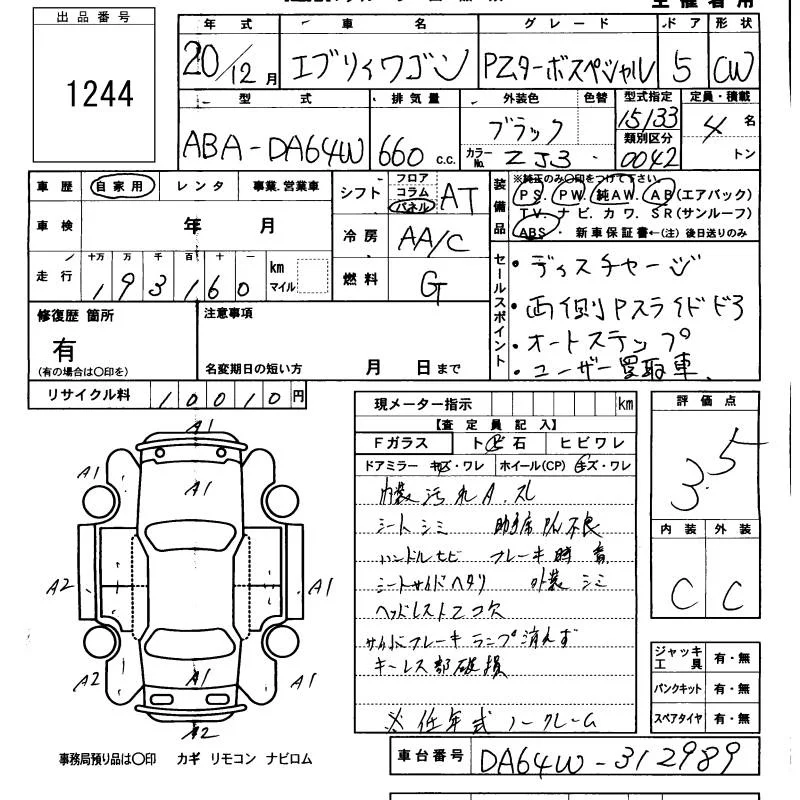 出品番号
1244
年式 車名 グレード ドア 形状
20/12月 エブリィワゴン PZターボスペシャル 5 CW
型式 排気量 外装色 色替 型式指定 定員・積載
ABA-DA64W 660 c.c. ブラック 15133 4名
カラーNo. ZJ3 類別区分 0042 トン
車歴 自家用 レンタ 事業.営業車
車検 年 月
走行 十万 万 千 百 十 一 km マイル
193160
シフト フロア コラム パネル AT
冷房 AA/C
燃料 G
装備品 ※純正のみ○印をつけて下さい。
PS. PW. 純AW. AB(エアバック)
TV. ナビ. カワ. SR(サンルーフ)
ABS. 新車保証書←(注) 後日送りのみ
セールスポイント
・ディスチャージ
・両側Pスライドドア
・オートステップ
・ユーザー買取車
修復歴 箇所
有
(有の場合は○印を)
注意事項
名変期日の短い方 月 日まで
リサイクル料 10010円
現メーター指示 km
【査定員記入】
Fガラス ト 石 ヒビワレ
ドアミラー キズ・ワレ ホイール(CP) キズ・ワレ
内装汚れA.スレ
シートシミ 助手席 不良
ハンドルヒビ ブレーキ時 音
シートサイドヘタリ 外装シミ
ヘッドレスト2コ欠
サイドブレーキランプ消えず
キーレス部破損
※低年式ノークレーム
評価点
3.5
内装 外装
C C
ジャッキ工具 有・無
パンクキット 有・無
スペアタイヤ 有・無
A1
A1 A1 A1
A2 A1
A2 A1 A1
A2
事務局預り品は○印 カギ リモコン ナビロム
車台番号 DA64W-312989